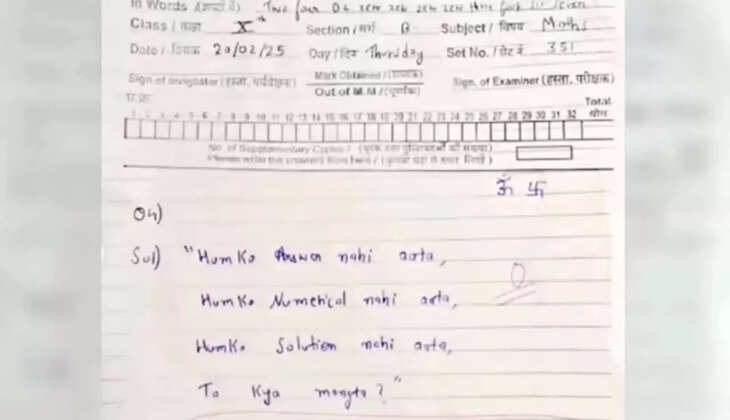 In Words (शब्दों में) Two four
Class / कक्षा Xth Section / वर्ग B Subject / विषय Maths
Date / दिनांक 20/02/25 Day / दिन Thursday Set No. / सेट नं. 351
Sign of Invigilator (हस्ता. पर्यवेक्षक) Mark Obtained / (प्राप्तांक) Sign. of Examiner (हस्ता. परीक्षक)
Out of M.M / (पूर्णांक)
Total
1 2 3 4 5 6 7 8 9 10 11 12 13 14 15 16 17 18 19 20 21 22 23 24 25 26 27 28 29 30 31 32 योग
No. of Supplementary Copies /
Please write the answers from here / (कृपया यहाँ से उत्तर लिखें)
ॐ 卐
Q4)
Sol) "Humko Answer nahi aata,
0
Humko Numerical nahi aata,
Humko Solution nahi aata,
To Kya mangta?"